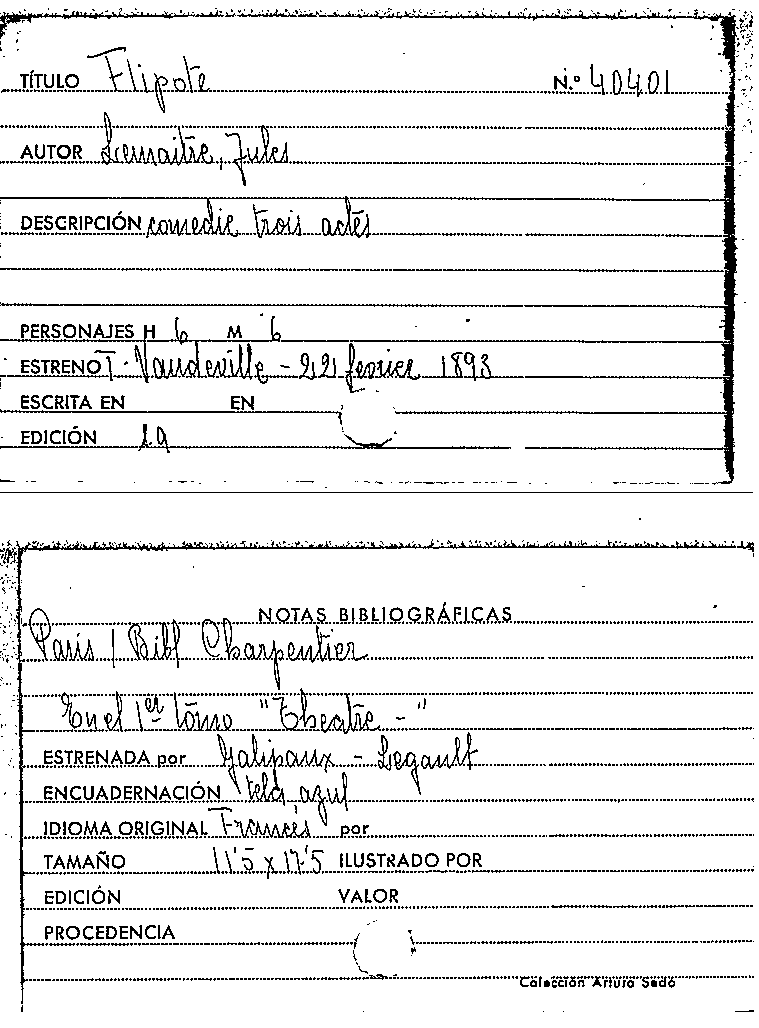 TÍTULO Flipote N.º 40401
AUTOR Lemaitre, Jules
DESCRIPCIÓN comedie trois actes
PERSONAJES H 6 M 6
ESTRENO T. Vaudeville - 22 fevrier 1893
ESCRITA EN EN
EDICIÓN 1a
NOTAS BIBLIOGRÁFICAS
Paris / Bibl Charpentier
En el 1er tomo "Theatre -"
ESTRENADA por Galipaux - Legault
ENCUADERNACIÓN tela azul
IDIOMA ORIGINAL Francés por
TAMAÑO 11'5 x 17'5 ILUSTRADO POR
EDICIÓN VALOR
PROCEDENCIA
Colección Arturo Sedó